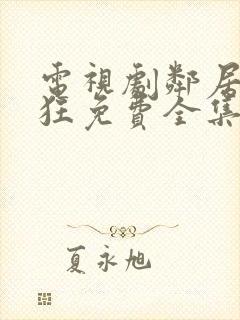 電視劇鄰居
狂免費全集
夏永旭